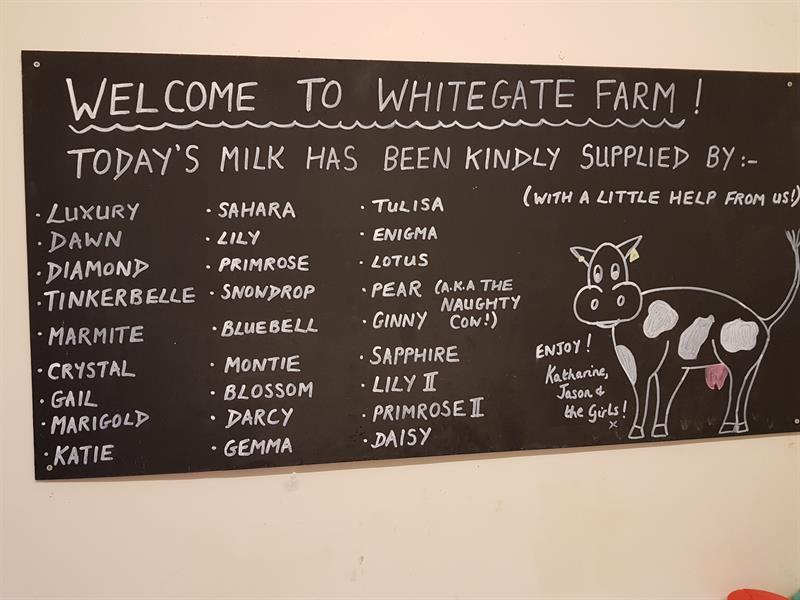 WELCOME TO WHITEGATE FARM!
TODAY'S MILK HAS BEEN KINDLY SUPPLIED BY:-
(WITH A LITTLE HELP FROM US!)
· LUXURY
· DAWN
· DIAMOND
· TINKERBELLE
· MARMITE
· CRYSTAL
· GAIL
· MARIGOLD
· KATIE
· SAHARA
· LILY
· PRIMROSE
· SNOWDROP
· BLUEBELL
· MONTIE
· BLOSSOM
· DARCY
· GEMMA
· TULISA
· ENIGMA
· LOTUS
· PEAR (A.K.A THE
NAUGHTY
COW!)
· GINNY
· SAPPHIRE
· LILY II
· PRIMROSE II
· DAISY
ENJOY!
Katharine,
Jason &
the Girls!
x